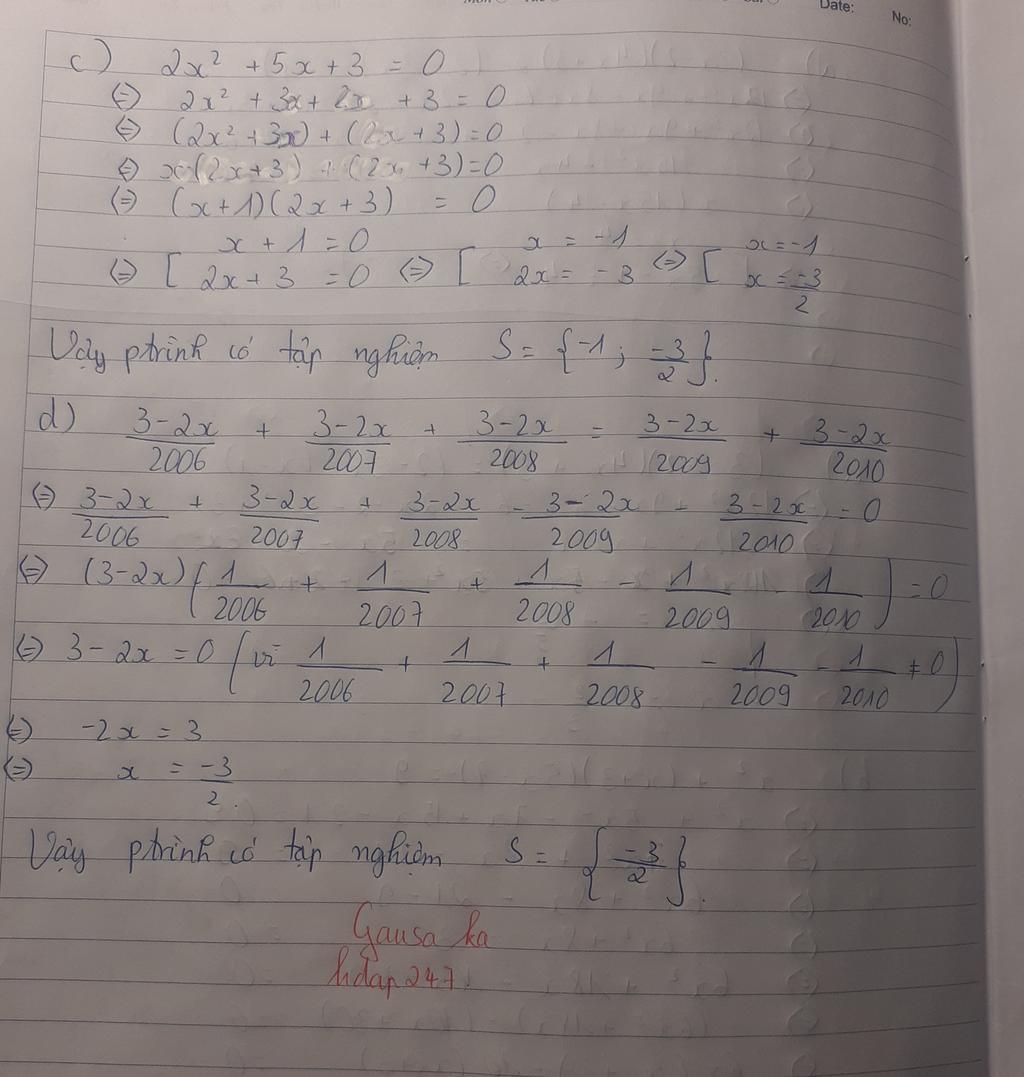 Date: No:
c) 2x² + 5x + 3 = 0
⇔ 2x² + 3x + 2x + 3 = 0
⇔ (2x² + 3x) + (2x + 3) = 0
⇔ x(2x + 3) + (2x + 3) = 0
⇔ (x + 1)(2x + 3) = 0
x + 1 = 0 x = -1 x = -1
⇔ [ 2x + 3 = 0 ⇔ [ 2x = -3 ⇔ [ x = -3/2
Vậy ptrình có tập nghiệm S = {-1; -3/2}.
d) 3-2x/2006 + 3-2x/2007 + 3-2x/2008 = 3-2x/2009 + 3-2x/2010
⇔ 3-2x/2006 + 3-2x/2007 + 3-2x/2008 - 3-2x/2009 - 3-2x/2010 = 0
⇔ (3-2x)(1/2006 + 1/2007 + 1/2008 - 1/2009 - 1/2010) = 0
⇔ 3-2x = 0 (vì 1/2006 + 1/2007 + 1/2008 - 1/2009 - 1/2010 ≠ 0)
⇔ -2x = 3
⇔ x = -3/2.
Vậy ptrình có tập nghiệm S = {-3/2}.
Gausa ka
hdap247